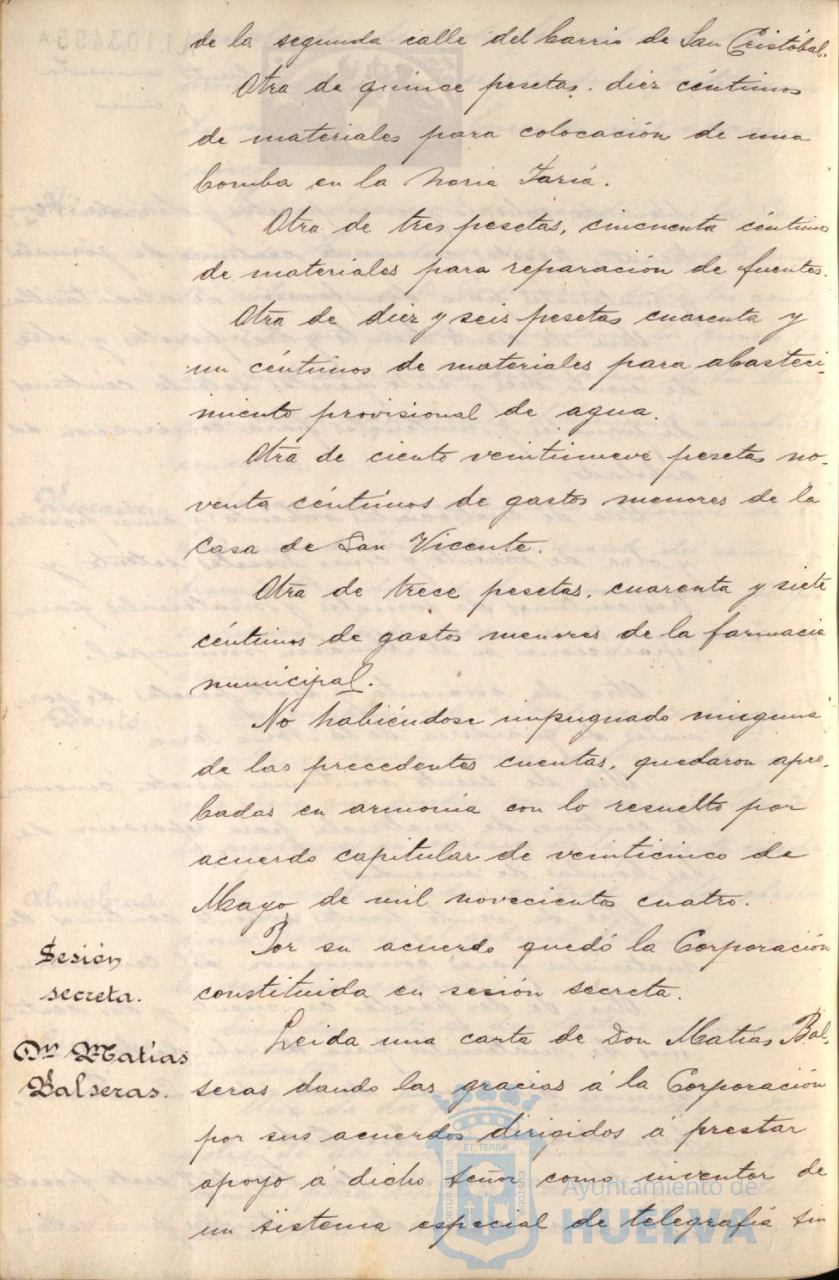 de la segunda calle del barrio de San Cristóbal.
Otra de quince pesetas. diez céntimos
de materiales para colocación de una
bomba en la noria Faria.
Otra de tres pesetas, cincuenta céntimos
de materiales para reparación de fuentes.
Otra de diez y seis pesetas cuarenta y
un céntimos de materiales para abasteci-
miento provisional de agua.
Otra de ciento veintinueve pesetas no-
venta céntimos de gastos menores de la
Casa de San Vicente.
Otra de trece pesetas, cuarenta y siete
céntimos de gastos menores de la farmacia
municipal.
No habiéndose impugnado ninguna
de las precedentes cuentas, quedaron apro-
badas en armonía con lo resuelto por
acuerdo capitular de veinticinco de
Mayo de mil novecientos cuatro.
Sesión
secreta.
Por su acuerdo quedó la Corporación
constituida en sesión secreta.
Dn Matías
Balseras.
Leida una carta de Don Matías Bal-
seras dando las gracias á la Corporación
por sus acuerdos dirigidos á prestar
apoyo á dicho Señor como inventor de
un sistema especial de telegrafía sin
ET TERRÆ
PORTUS MARIS
CUSTODIA
Ayuntamiento de
HUELVA